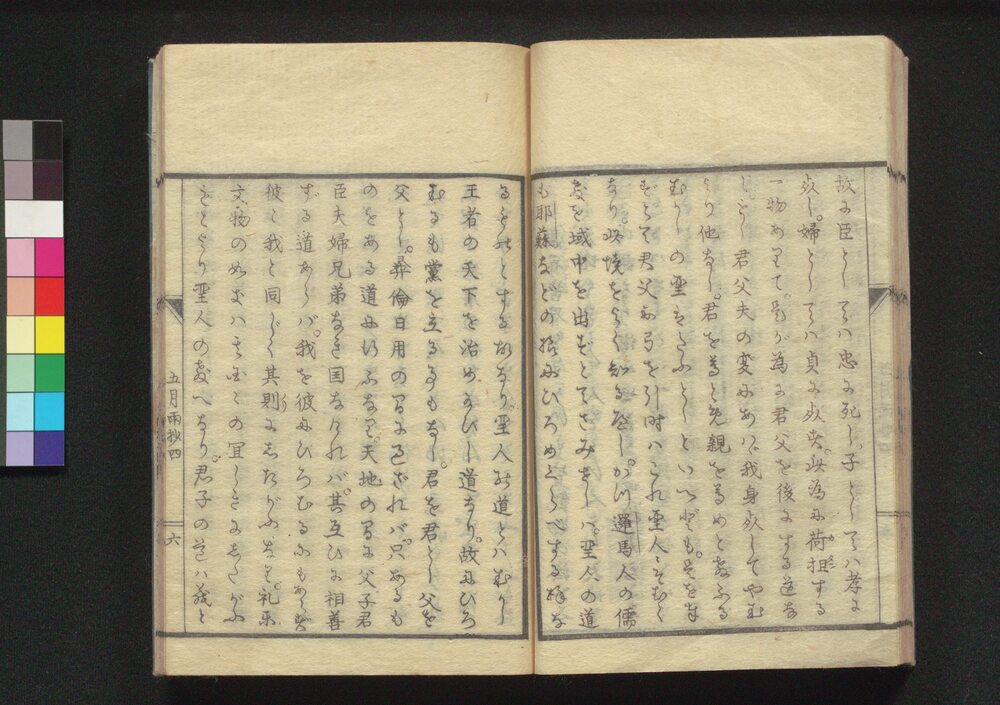 故に臣としては忠に死し子としては孝に
死し。婦としては貞に死す。此為に荷担する
一物ありて。是が為に君父を後にする道な
し。もし君父夫の変にあへば我身死してやむ
より他なし。君を尊とみ親を尊めと教ふる
むかしの聖をたふとしといへども。其を率
ずゐて君父に弓を引時はこれ聖人にそむく
なり。此境をよく知るべし。かの邏馬人の儒
教を域中を出ずとてさみすしは。聖人の道
も耶蘇などの様にひろめくらべする様な
るものとする故なり。聖人の道とはむかし
王者の天下を治め玉ひし道なり。故にひろ
むるも黨を立る事もなし。君を君とし父を
父とし。彝倫日用の間に過ざれバ。只あるも
のをある道に行ふなり。天地の間に父子君
臣夫婦兄弟なき国なければ。其互ひに相善
する道あらバ。我を彼にひろむるにもあらず
彼ハ我と同じく其則にしたがふなり。礼楽
文物のぬハその国〻の宜しきにしたがふ
をとより聖人の教へなり。君子の道ハ我と
五月雨抄四
六